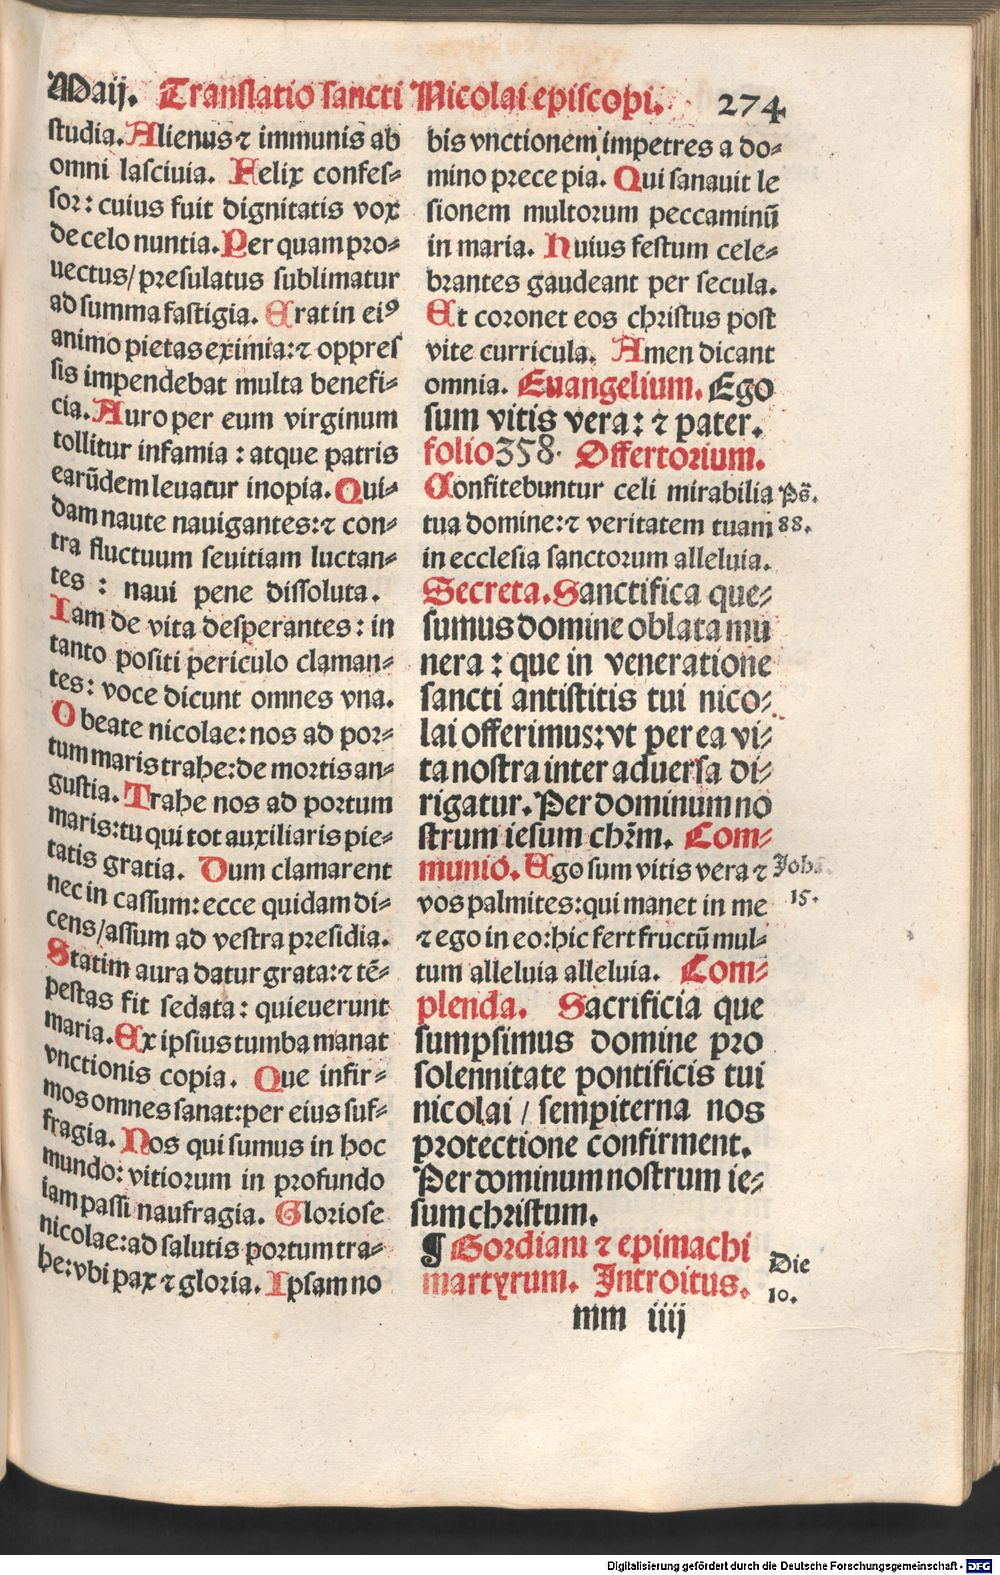 Maij. Translatio sancti Nicolai episcopi. 274
studia. Alienus ⁊ immunis ab
omni lasciuia. Felix confes⸗
sor: cuius fuit dignitatis vox
de celo nuntia. Per quam pro⸗
uectus/ presulatus sublimatur
ad summa fastigia. Erat in eiꝰ
animo pietas eximia: ⁊ oppres
sis impendebat multa benefi⸗
cia. Auro per eum virginum
tollitur infamia: atque patris
earūdem leuatur inopia. Qui⸗
dam naute nauigantes: ⁊ con⸗
tra fluctuum seuitiam luctan⸗
tes: naui pene dissoluta.
Iam de vita desperantes: in
tanto positi periculo claman⸗
tes: voce dicunt omnes vna.
O beate nicolae: nos ad por⸗
tum maris trahe: de mortis an⸗
gustia. Trahe nos ad portum
maris: tu qui tot auxiliaris pie⸗
tatis gratia. Dum clamarent
nec in cassum: ecce quidam di⸗
cens/ assum ad vestra presidia.
Statim aura datur grata: ⁊ tē⸗
pestas fit sedata: quieuerunt
maria. Ex ipsius tumba manat
vnctionis copia. Que infir⸗
mos omnes sanat: per eius suf⸗
fragia. Nos qui sumus in hoc
mundo: vitiorum in profundo
iam passi naufragia. Gloriose
nicolae: ad salutis portum tra⸗
he: vbi pax ⁊ gloria. Ipsam no
bis vnctionem impetres a do⸗
mino prece pia. Qui sanauit le
sionem multorum peccaminū
in maria. Huius festum cele⸗
brantes gaudeant per secula.
Et coronet eos christus post
vite curricula. Amen dicant
omnia. Euangelium. Ego
sum vitis vera: ⁊ pater.
folio 358. Offertorium.
Confitebuntur celi mirabilia
Ps̄.
tua domine: ⁊ veritatem tuam
88.
in ecclesia sanctorum alleluia.
Secreta. Sanctifica que⸗
sumus domine oblata mu
nera: que in veneratione
sancti antistitis tui nico⸗
lai offerimus: vt per ea vi⸗
ta nostra inter aduersa di⸗
rigatur. Per dominum no
strum iesum chr̄m. Com⸗
munio. Ego sum vitis vera ⁊
vos palmites: qui manet in me
15.
⁊ ego in eo: hic fert fructū mul⸗
tum alleluia alleluia. Com⸗
plenda. Sacrificia que
sumpsimus domine pro
solennitate pontificis tui
nicolai / sempiterna nos
protectione confirment.
Per dominum nostrum ie⸗
sum christum.
¶ Gordiani ⁊ epimachi
Die
martyrum. Introitus.
10.
mm iiij
Digitalisierung gefördert durch die Deutsche Forschungsgemeinschaft - DFG